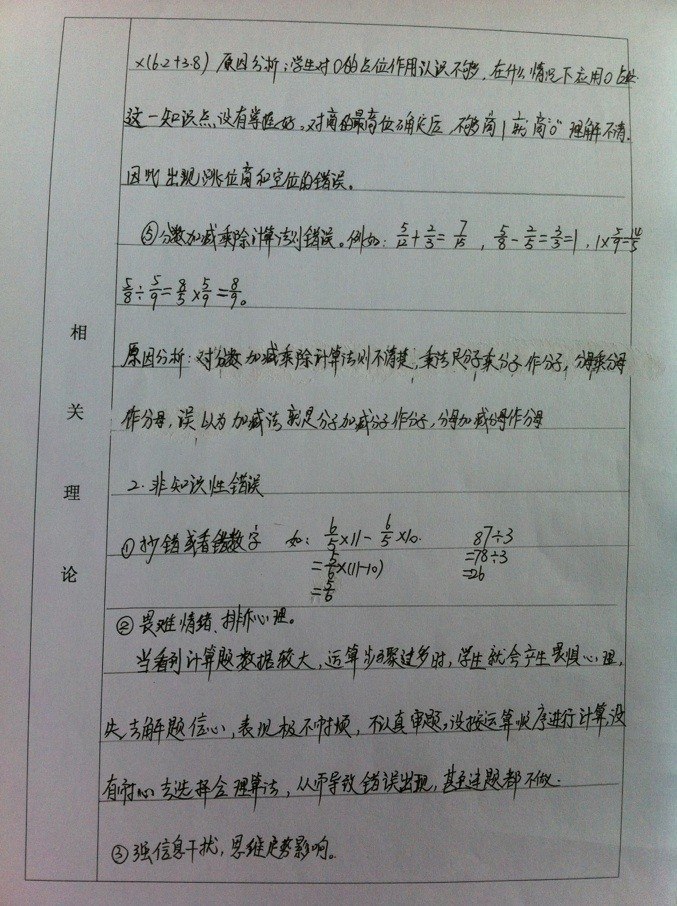 ×(6.2+3.8) 原因分析：学生对0的占位作用认识不够，在什么情况下应用0占位
这一知识点没有掌握好，对商的最高位确定后，不够商1就"商0"理解不清，
因此出现跳位商和空位的错误。
⑤分数加减乘除计算法则错误。例如：5/12+2/3=7/15，5/8-2/5=3/3=1，1×5/9=
5/8÷5/9=8/5×5/9=8/9。
原因分析：对分数加减乘除计算法则不清楚，乘法是分子乘分子作分子，分母乘分母
作分母，误以为加减法就是分子加减分子作分子，分母加减分母作分母
2. 非知识性错误
①抄错或者错数字 如：6/5×11-6/5×10 87÷3
=5/6×(11-10) =78÷3
=5/6 =26
②畏难情绪、排斥心理。
当看到计算题数据较大，运算步骤过多时，学生就会产生畏惧心理，
失去解题信心，表现极不耐烦，不认真审题，没按运算顺序进行计算，没
有耐心去选择合理算法，从而导致错误出现，甚至连题都不做．
③强信息干扰，思维定势影响。
相
关
理
论